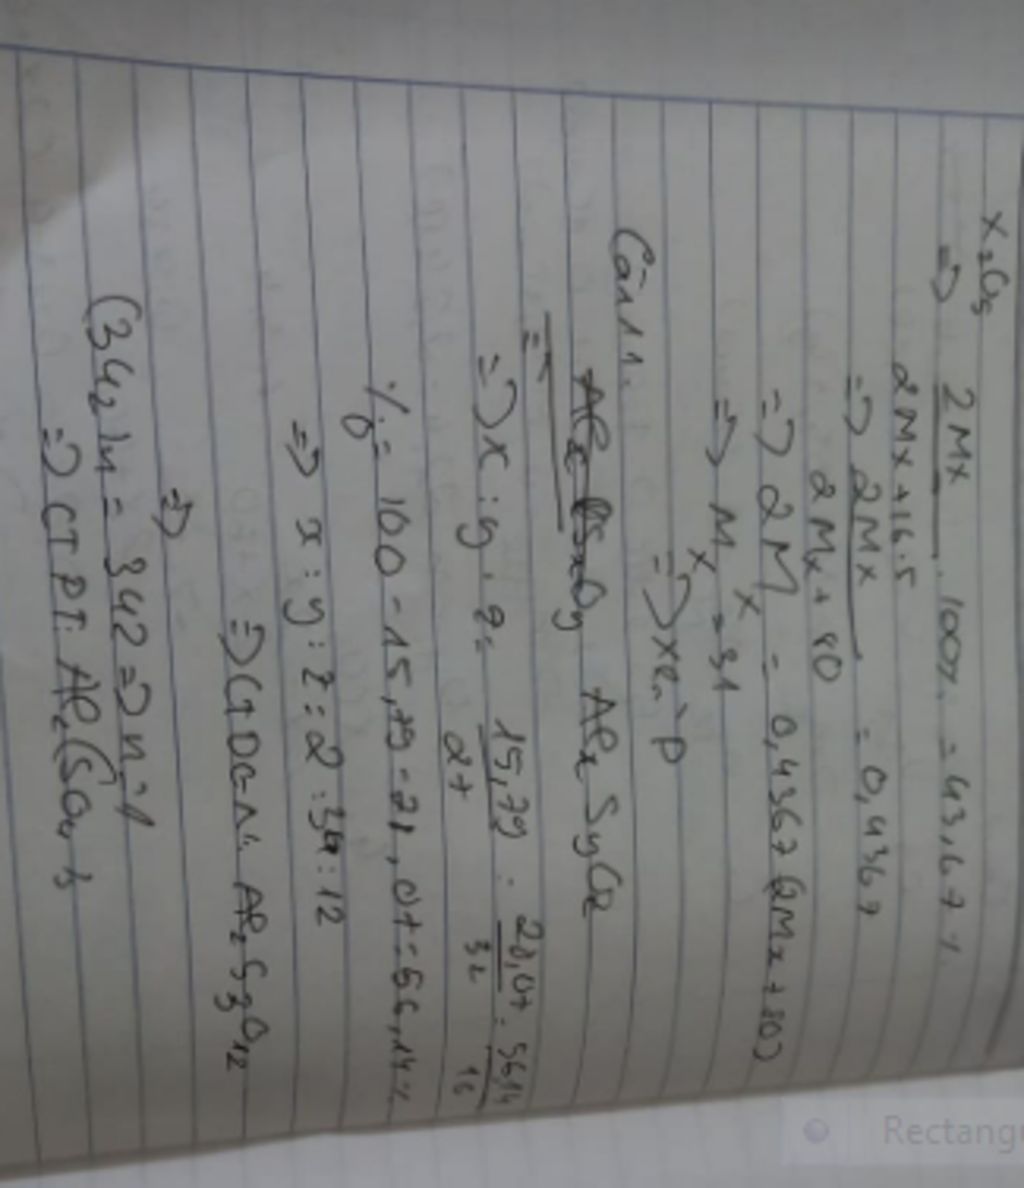 X₂O₅
=> 2Mx / 2Mx+16.5 . 100% = 43,67%
=> 2Mx / 2Mx+80 = 0,4367
=> 2Mx = 0,4367(2Mx+80)
=> Mx = 31
=> X là P
Câu 11.
AlxSyOz
=> x:y:z = 15,79/27 : 28,07/32 : 56,14/16
% = 100-15,79-28,07=56,14%
=> x:y:z=2:3:12
=> CTĐGN: Al₂S₃O₁₂
=>
(342)n = 342 => n=1
=> CTPT: Al₂(SO₄)₃